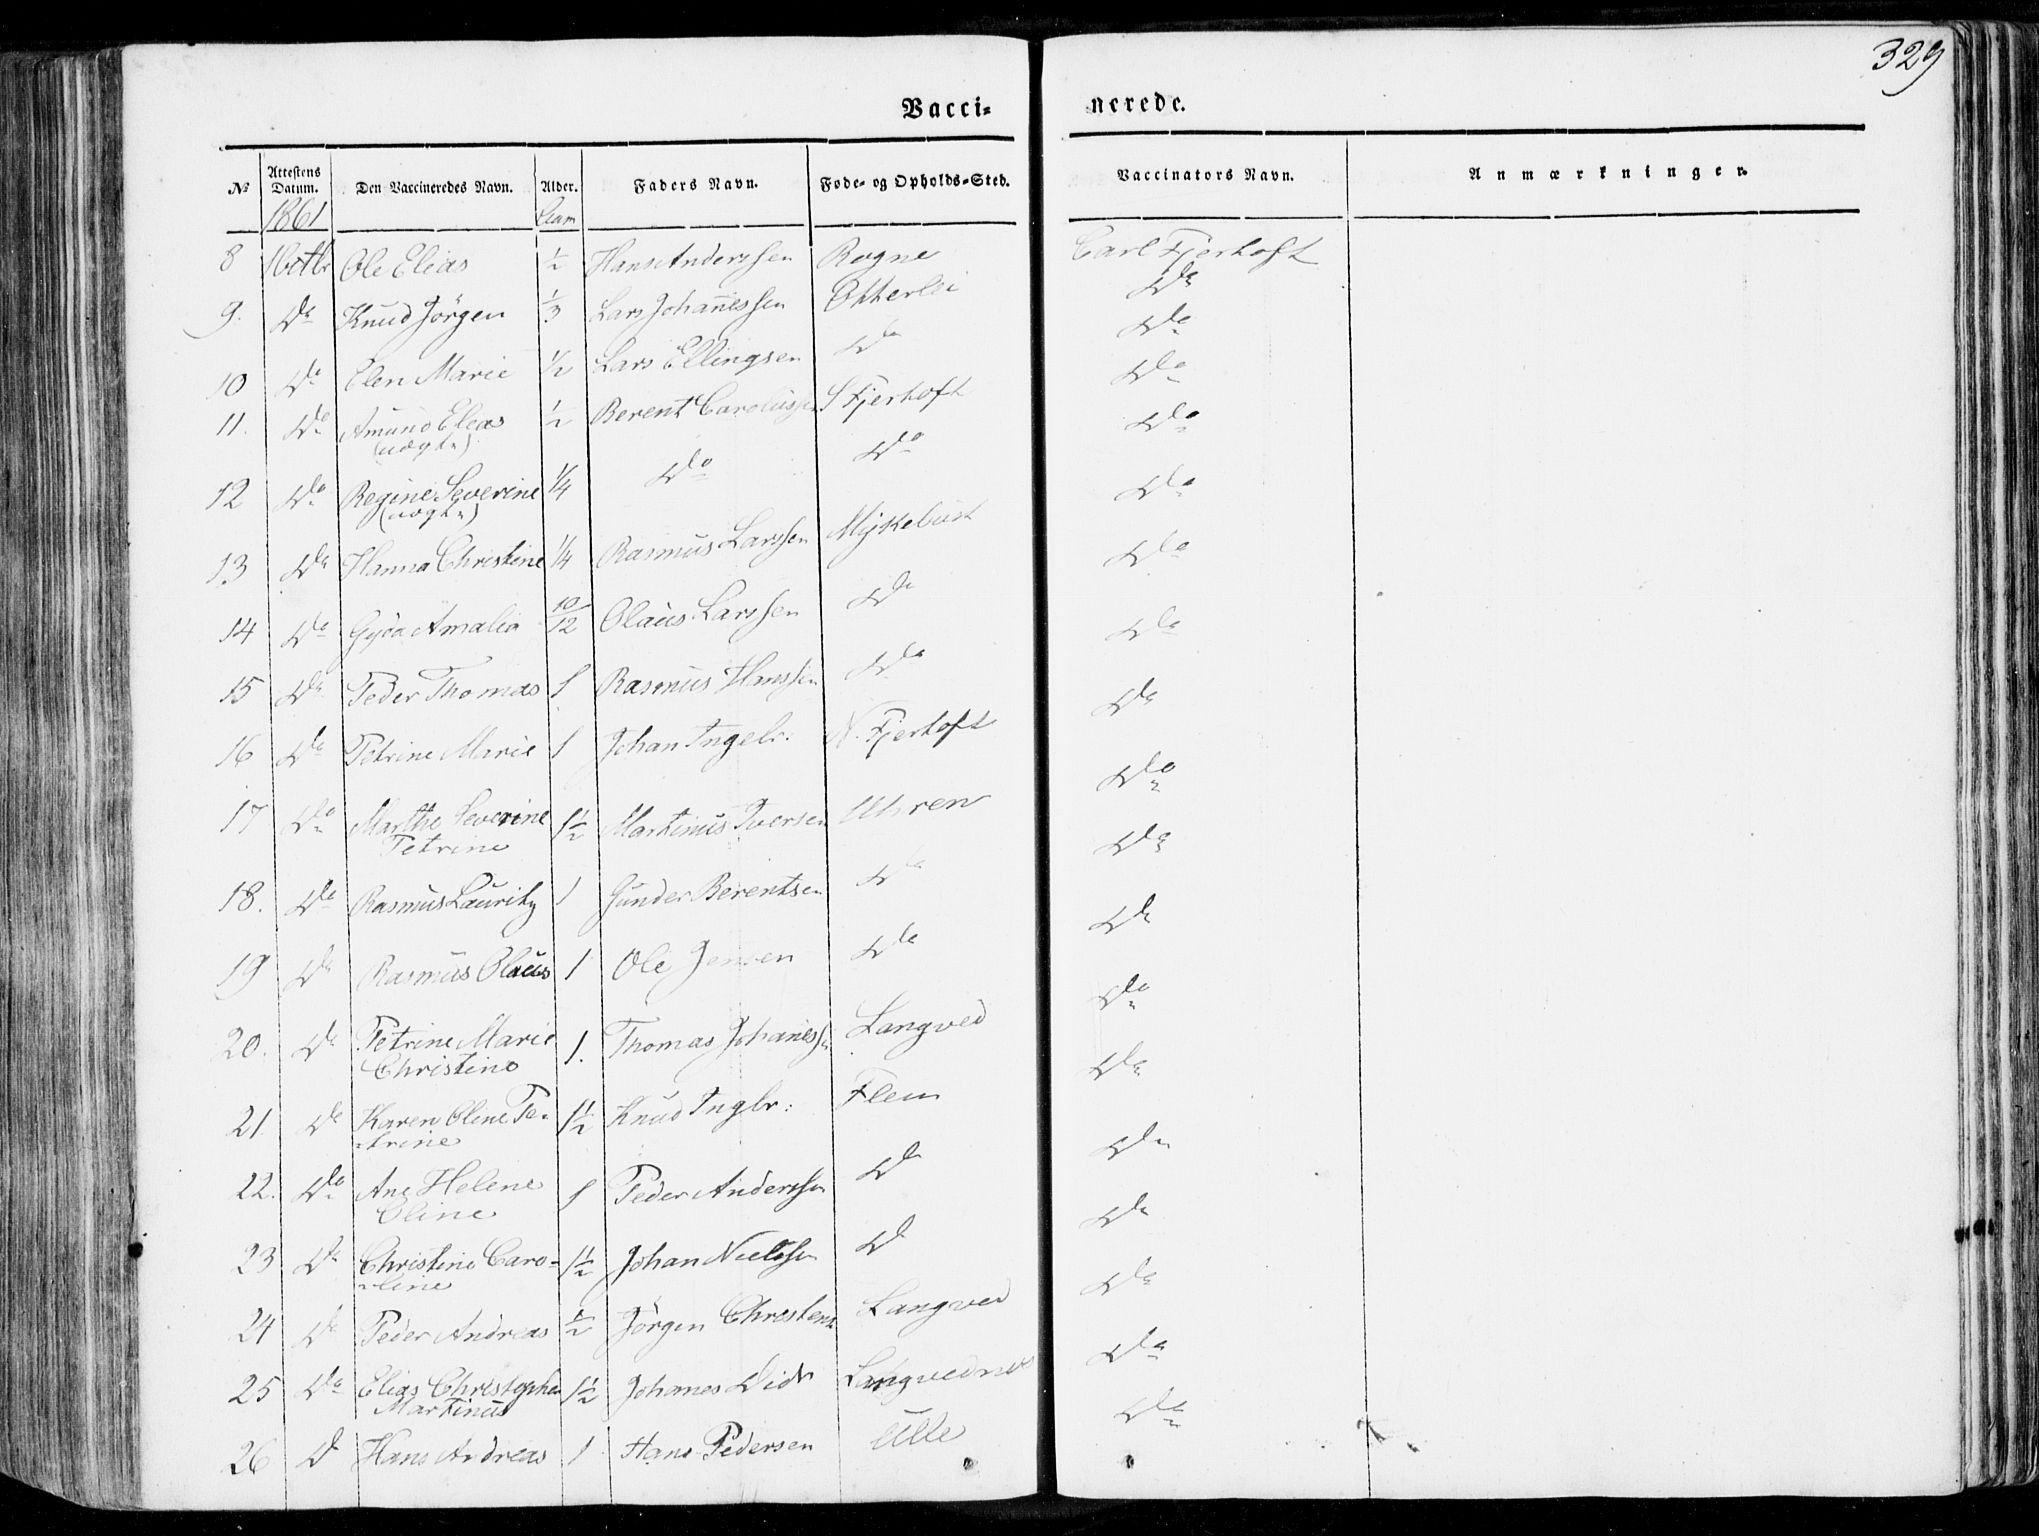 329
Vacci= nerede.
№ Attestens Datum. Den Vaccineredes Navn. Alder. Faders Navn. Føde- og Opholds-Sted. Vaccinators Navn. Anmærkninger.
1861 Aar
8 16 Ole Elias ½ Hans Anderssen Rogne Carl Fjertoft
9. Do Knud Jörgen ⅓ Lars Johanessen Otterlei Do
10 Do Elen Marie ½ Lars Ellingsen Do Do
11. Do Amund Elias ½ Berent Carolussen S Fjertoft Do
(uægte)
12 Do Regine Severine ¼ Do Do Do
(uægte)
13 Do Hanna Christine ¼ Rasmus Larssen Mykebust Do
14 Do Gyda Amalia 10/12 Olaus Larssen Do Do
15 Do Peder Thomas 1 Rasmus Hanssen Do Do
16 Do Petrine Marie 1 Johan Ingebr: N. Fjertoft Do
17 Do Marthe Severine 1½ Martinus Iversen Uhren Do
Petrine
18. Do Rasmus Lauritz 1 Gunder Berentsen Do Do
19 Do Rasmus Olaus 1 Ole Jensen Do Do
20. Do Petrine Marie 1. Thomas Johaness Langved Do
Christine
21. Do Karen Oline Pe- 1½ Knud Ingbr: Flem Do
trine
22. Do Ane Helene 1 Peder Anderssen Do Do
Oline
23 Do Christine Caro- 1½ Johan Nielssen Do Do
line
24 Do Peder Andreas ½ Jörgen Christens Langved Do
25 Do Elias Christopher 1½ Johanes Didr Langvednes Do
Martinus
26 D Hans Andreas 1 Hans Pedersen Ulle Do